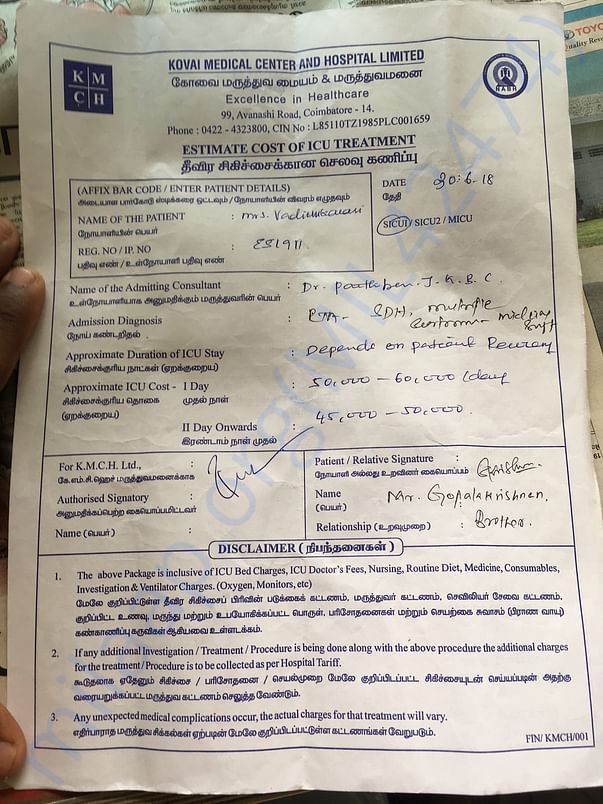 KOVAI MEDICAL CENTER AND HOSPITAL LIMITED
K M
C H
கோவை மருத்துவ மையம் & மருத்துவமனை
Excellence in Healthcare
99, Avanashi Road, Coimbatore - 14.
Phone : 0422 - 4323800, CIN No : L85110TZ1985PLC001659
NABH
ESTIMATE COST OF ICU TREATMENT
தீவிர சிகிச்சைக்கான செலவு கணிப்பு
(AFFIX BAR CODE / ENTER PATIENT DETAILS)
DATE 30.6.18
தேதி
NAME OF THE PATIENT : Mrs.
நோயாளியின் பெயர்
SICU1 / SICU2 / MICU
REG. NO / IP. NO :
பதிவு எண் / உள்நோயாளி பதிவு எண்
Name of the Admitting Consultant : Dr.
உள்நோயாளியாக அனுமதிக்கும் மருத்துவரின் பெயர்
Admission Diagnosis : RTA - SDH, multiple
நோய் கண்டறிதல்
Approximate Duration of ICU Stay : Depends on patient Recovery
சிகிச்சைக்குரிய நாட்கள் (ஏறக்குறைய)
Approximate ICU Cost - I Day : 50,000 - 60,000 /day
சிகிச்சைக்குரிய தொகை முதல் நாள்
(ஏறக்குறைய)
II Day Onwards : 45,000 - 50,000.
இரண்டாம் நாள் முதல்
For K.M.C.H. Ltd., :
கே.எம்.சி.ஹெச் மருத்துவமனைக்காக
Authorised Signatory :
அனுமதிக்கப்பெற்ற கையொப்பமிட்டவர்
Name (பெயர்) :
Patient / Relative Signature :
நோயாளி அல்லது உறவினர் கையொப்பம்
Name : Mr. Gopalakrishnan,
(பெயர்)
Relationship (உறவுமுறை) : Brother.
DISCLAIMER ( நிபந்தனைகள் )
1. The above Package is inclusive of ICU Bed Charges, ICU Doctor's Fees, Nursing, Routine Diet, Medicine, Consumables,
Investigation & Ventilator Charges. (Oxygen, Monitors, etc)
மேலே குறிப்பிட்டுள்ள தீவிர சிகிச்சைப் பிரிவின் படுக்கைக் கட்டணம், மருத்துவர் கட்டணம், செவிலியர் சேவை கட்டணம்,
குறிப்பிட்ட உணவு, மருந்து மற்றும் உபயோகிக்கப்பட்ட பொருள், பரிசோதனைகள் மற்றும் செயற்கை சுவாசம் (பிராண வாயு)
கண்காணிப்பு கருவிகள் ஆகியவை உள்ளடக்கம்.
2. If any additional Investigation / Treatment / Procedure is being done along with the above procedure the additional charges
for the treatment / Procedure is to be collected as per Hospital Tariff.
கூடுதலாக ஏதேனும் சிகிச்சை / பரிசோதனை / செயல்முறை மேலே குறிப்பிடப்பட்ட சிகிச்சையுடன் செய்யப்படின் அதற்கு
வரையறுக்கப்பட்ட மருத்துவ கட்டணம் செலுத்த வேண்டும்.
3. Any unexpected medical complications occur, the actual charges for that treatment will vary.
எதிர்பாராத மருத்துவ சிக்கல்கள் ஏற்படின் மேலே குறிப்பிடப்பட்டுள்ள கட்டணங்கள் வேறுபடும்.
FIN/ KMCH/001